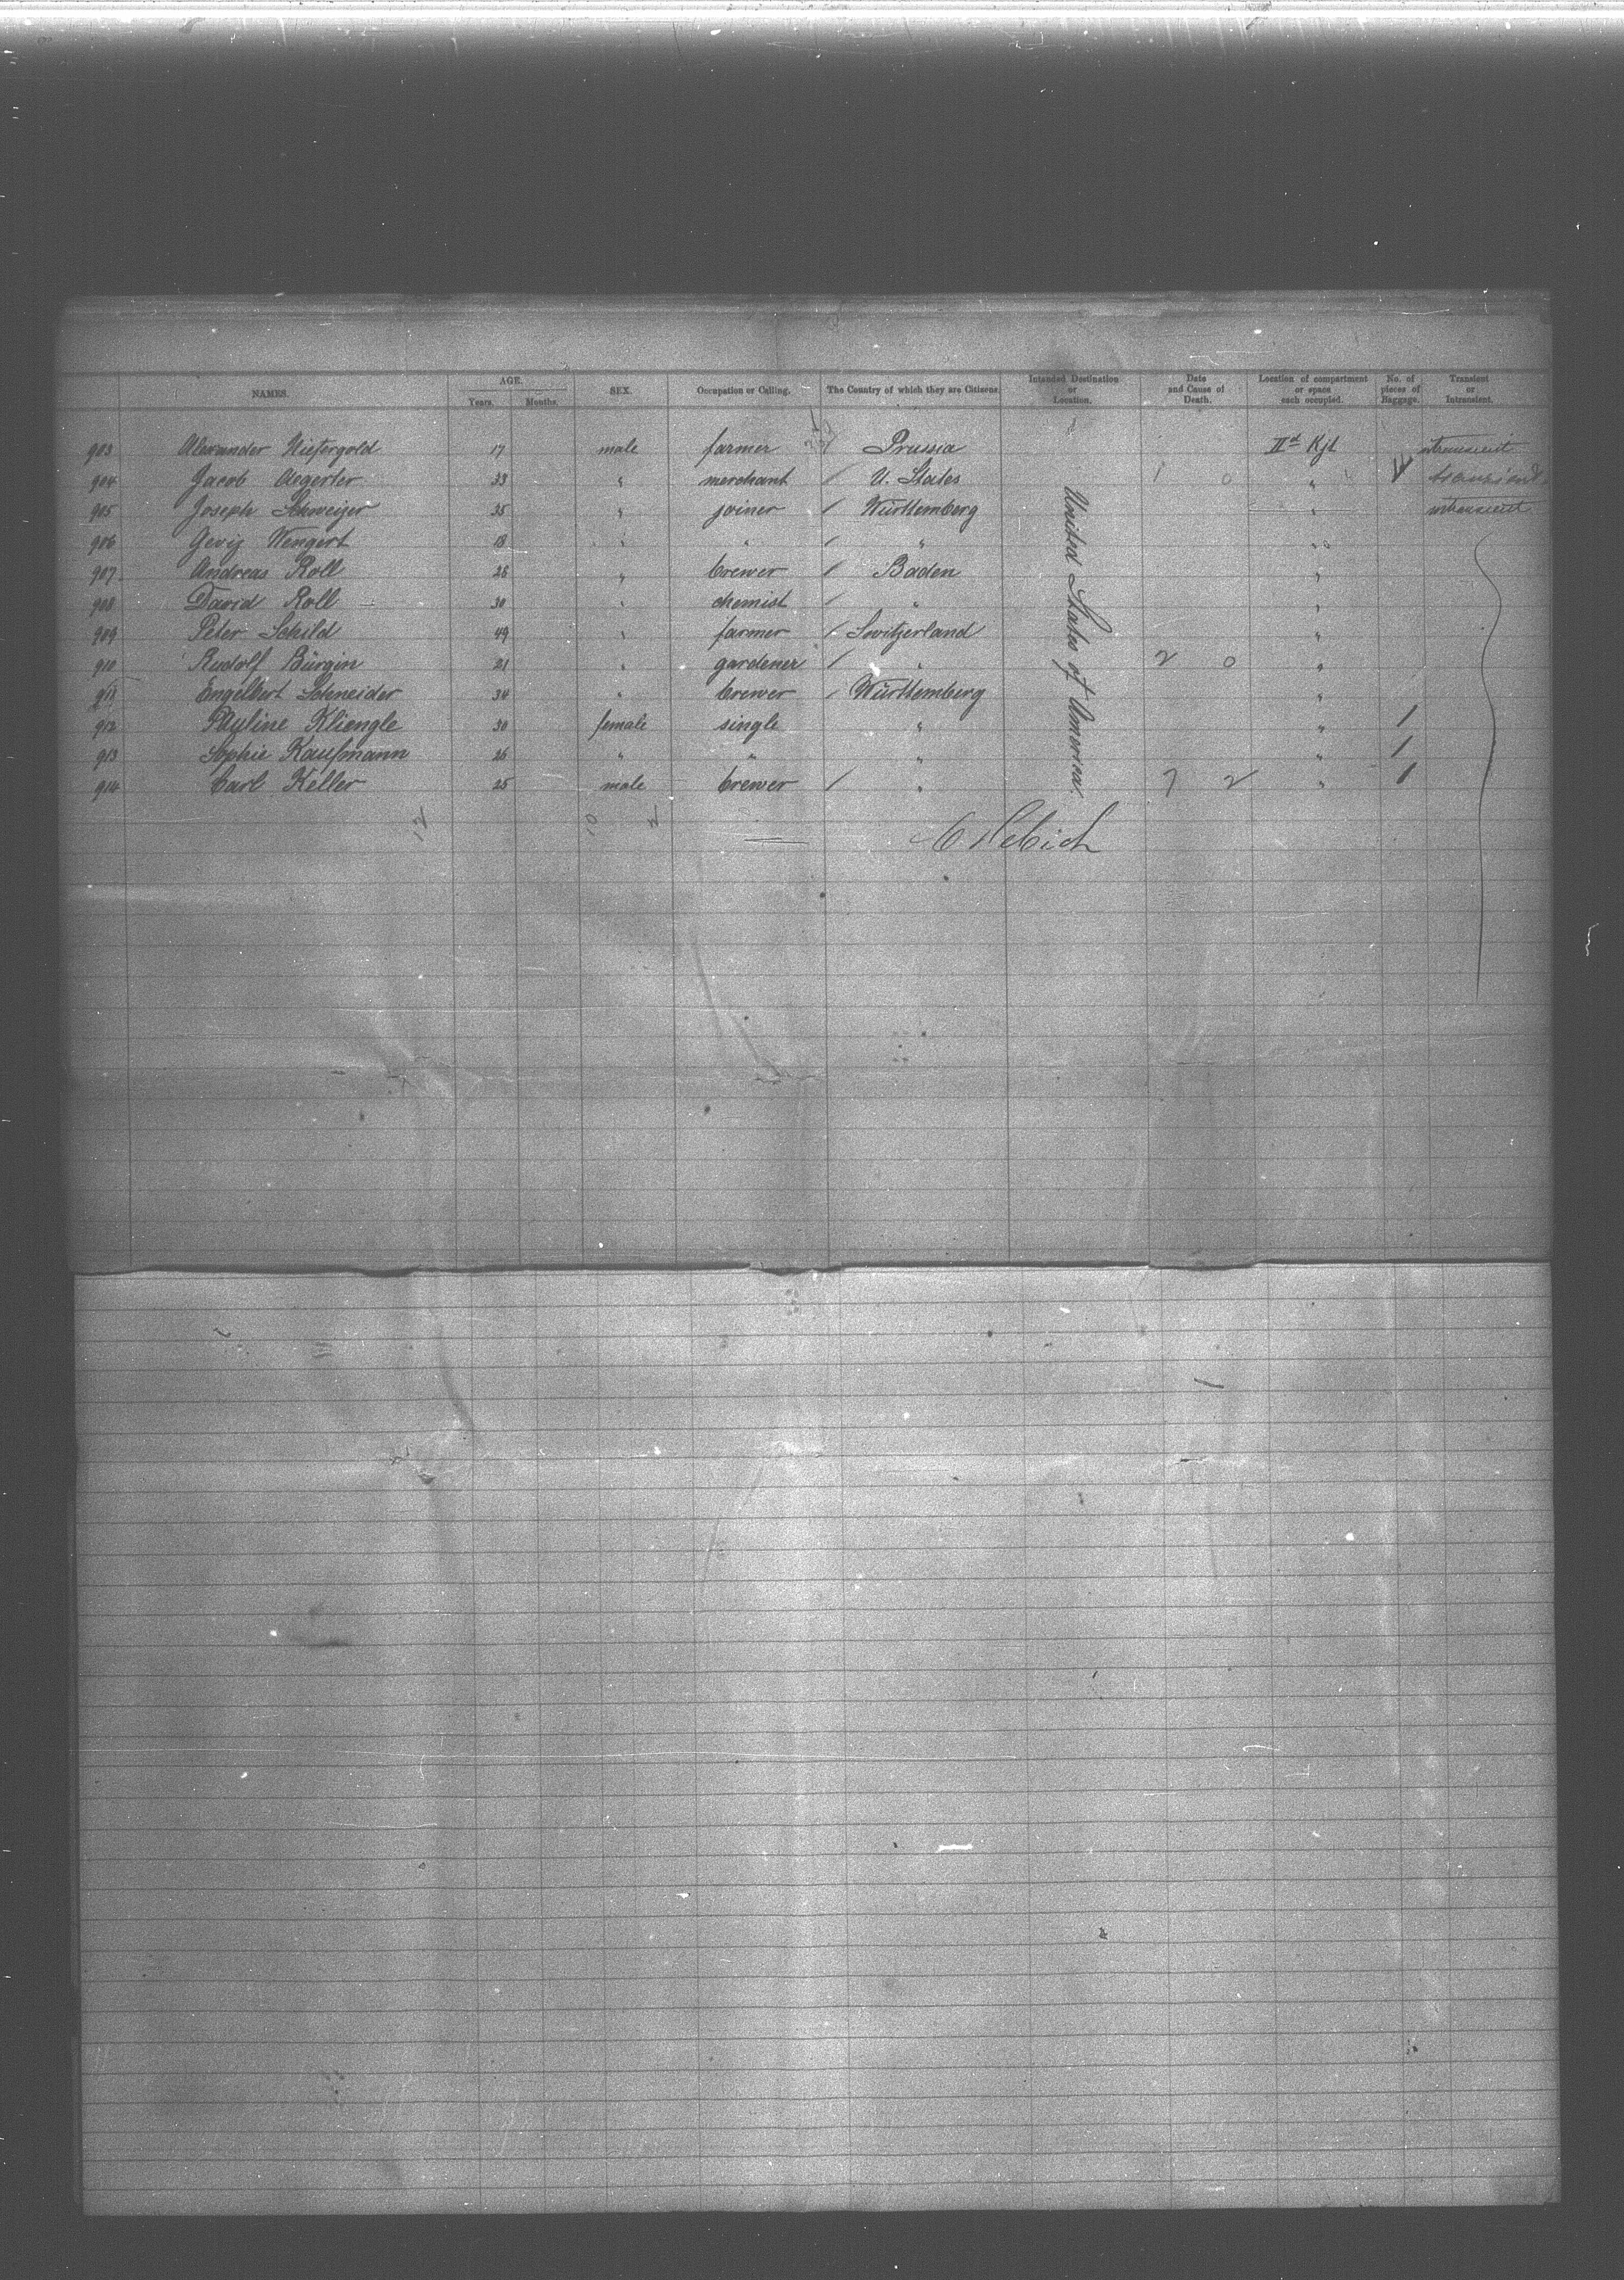 NAMES. AGE. Years. Months. SEX. Occupation or Calling. The Country of which they are Citizens. Intended Destination or Location. Date and Cause of Death. Location of compartment or space each occupied. No. of pieces of Baggage. Transient or Intransient.
903 Alexander 17 male farmer Prussia IId Kjt intransient
904 Jacob Aegerter 33 " merchant / U. States 1 0 " transient
905 Joseph Schweizer 35 " joiner / Württemberg " intransient
906 Georg Wengert 18 " " / " "
907 Andreas Roll 26 " brewer / Baden "
908 David Roll 30 " chemist / " "
909 Peter Schild 49 " farmer / Switzerland "
910 Rudolf Bürgin 21 " gardener / " 2 0 "
911 Engelbert Schneider 34 " brewer / Württemberg "
912 Pauline Kliengle 30 female single " " /
913 Sophie Kaufmann 26 " " " " /
914 Carl Keller 25 male brewer / " 7 2 " /
United States of America.
12 10 2